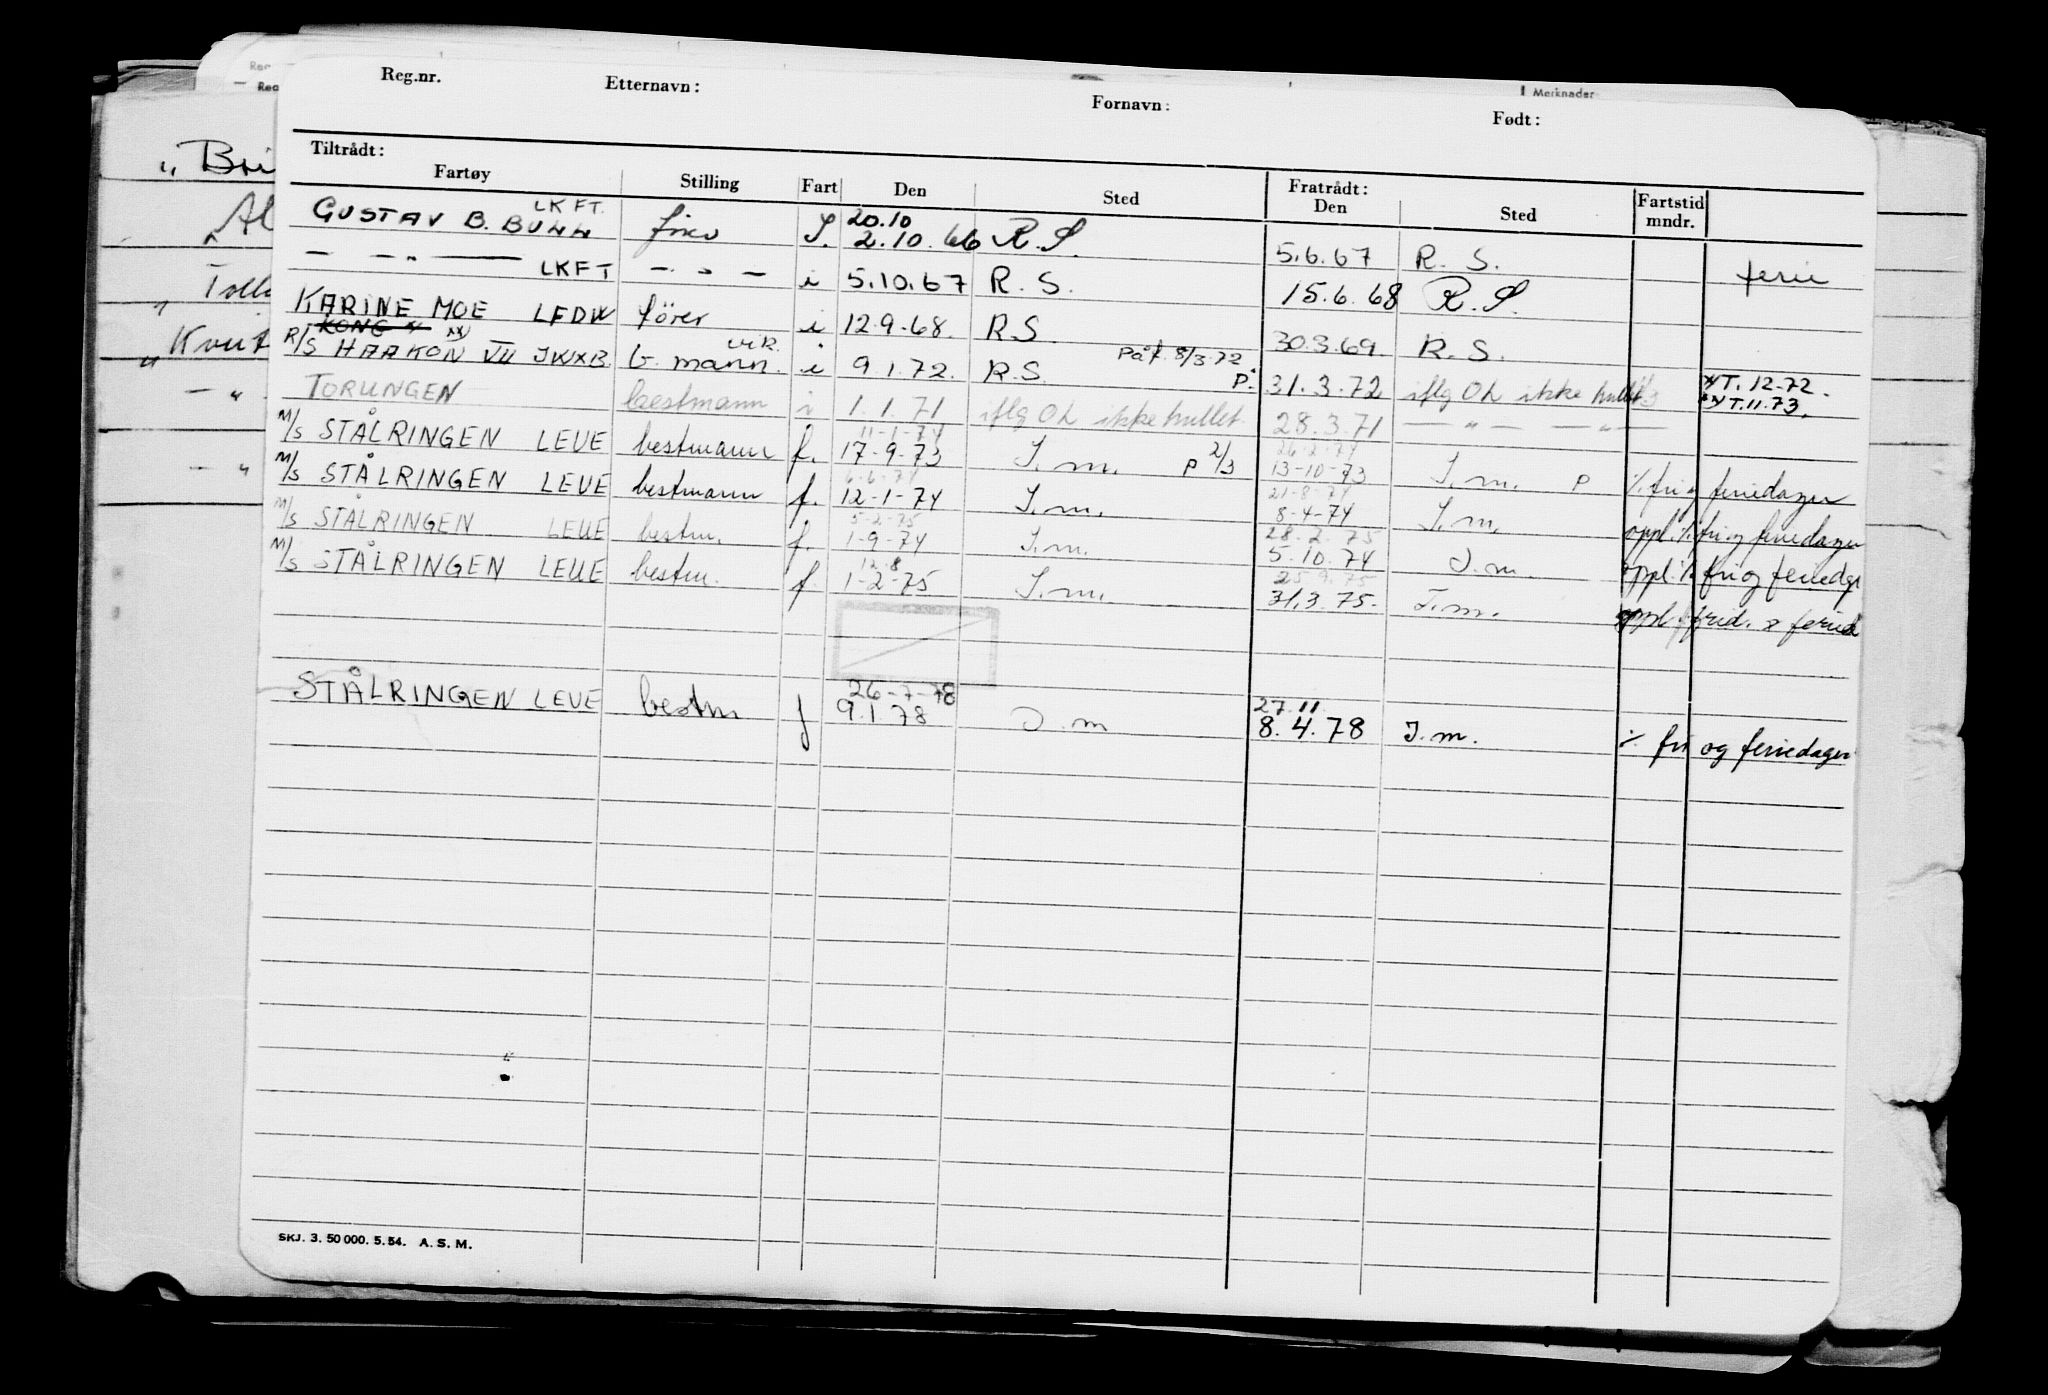 Reg.nr. Etternavn: Fornavn: Født: Merknader
Tiltrådt: Fratrådt:
Fartøy Stilling Fart Den Sted Den Sted Fartstid mndr.
"Bri
Al
Tolle
"Kvit
LKFT.
20.10
GUSTAV B. BUHH S. 2.10.66 R.S. 5.6.67 R.S. ferie
— — " — LKFT — " — i 5.10.67 R.S. 15.6.68 R.S.
KARINE MOE LFDW fører i 12.9.68. R.S. 30.3.69. R.S.
KONG
R/S HAAKON VII JWXB b. mann. vik. i 9.1.72. R.S. på f. 8/3.72 P. 31.3.72 iflg OL ikke hullet T. 12.72.
T. 11.73.
TORUNGEN bestmann i 1.1.71 iflg OL ikke hullet 28.3.71 — " — — " —
11-1-74 26-2-74
M/S STÅLRINGEN LEUE bestmann f. 17-9-73 I.m. P 2/3 13-10-73 I.m. P % fri og feriedager
6-6-74 21-8-74
M/S STÅLRINGEN LEUE bestmann f. 12-1-74 I.m. 8-4-74 I.m. oppl. % fri og feriedager
5-2-75 28.2.75
M/S STÅLRINGEN LEUE bestm. f. 1-9-74 I.m. 5.10.74 I.m. oppl. % fri og feriedgr
12.8 25.9.75
M/S STÅLRINGEN LEUE bestm. f 1-2-75 I.m. 31.3.75. I.m. oppl. frid. & feried
26-7-78 27.11
STÅLRINGEN LEUE bestm f 9.1.78 I.m 8.4.78 I.m. % fri og feriedager
SKJ. 3. 50 000. 5.54. A. S. M.